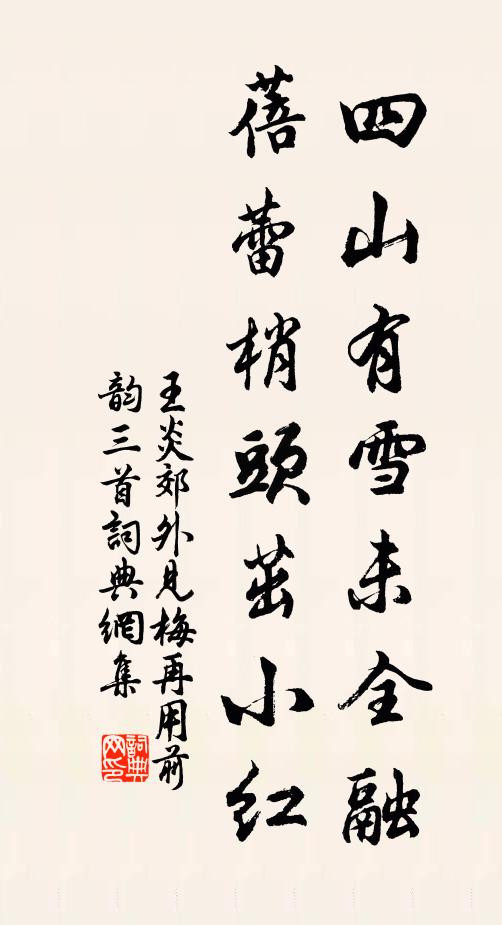 四山有雪未全融
蓓蕾梢頭茁小紅
王炎郊外見梅再用前
韵三首詞典網集
詞典網印